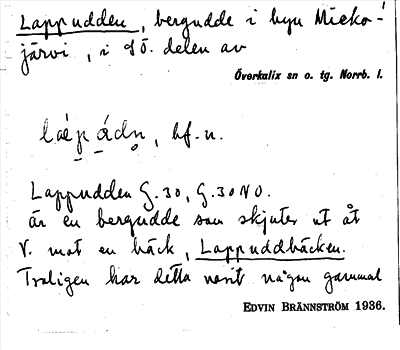 Lappudden, bergudde i byn Mieko-
järvi, i SÖ. delen av
Överkalix sn o. tg. Norrb. l.
bf. n.
Lappudden G. 30, G. 30 NO.
är en bergudde som skjuter ut åt
V. mot en bäck, Lappuddbäcken.
Troligen har detta varit någon gammal
EDVIN BRÄNNSTRÖM 1936.